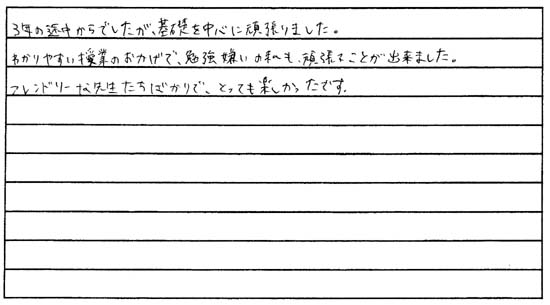 3年の途中からでしたが、基礎を中心に頑張りました。
わかりやすい授業のおかげで、勉強嫌いの私でも、頑張ることが出来ました。
フレンドリーな先生たちばかりで、とっても楽しかったです。